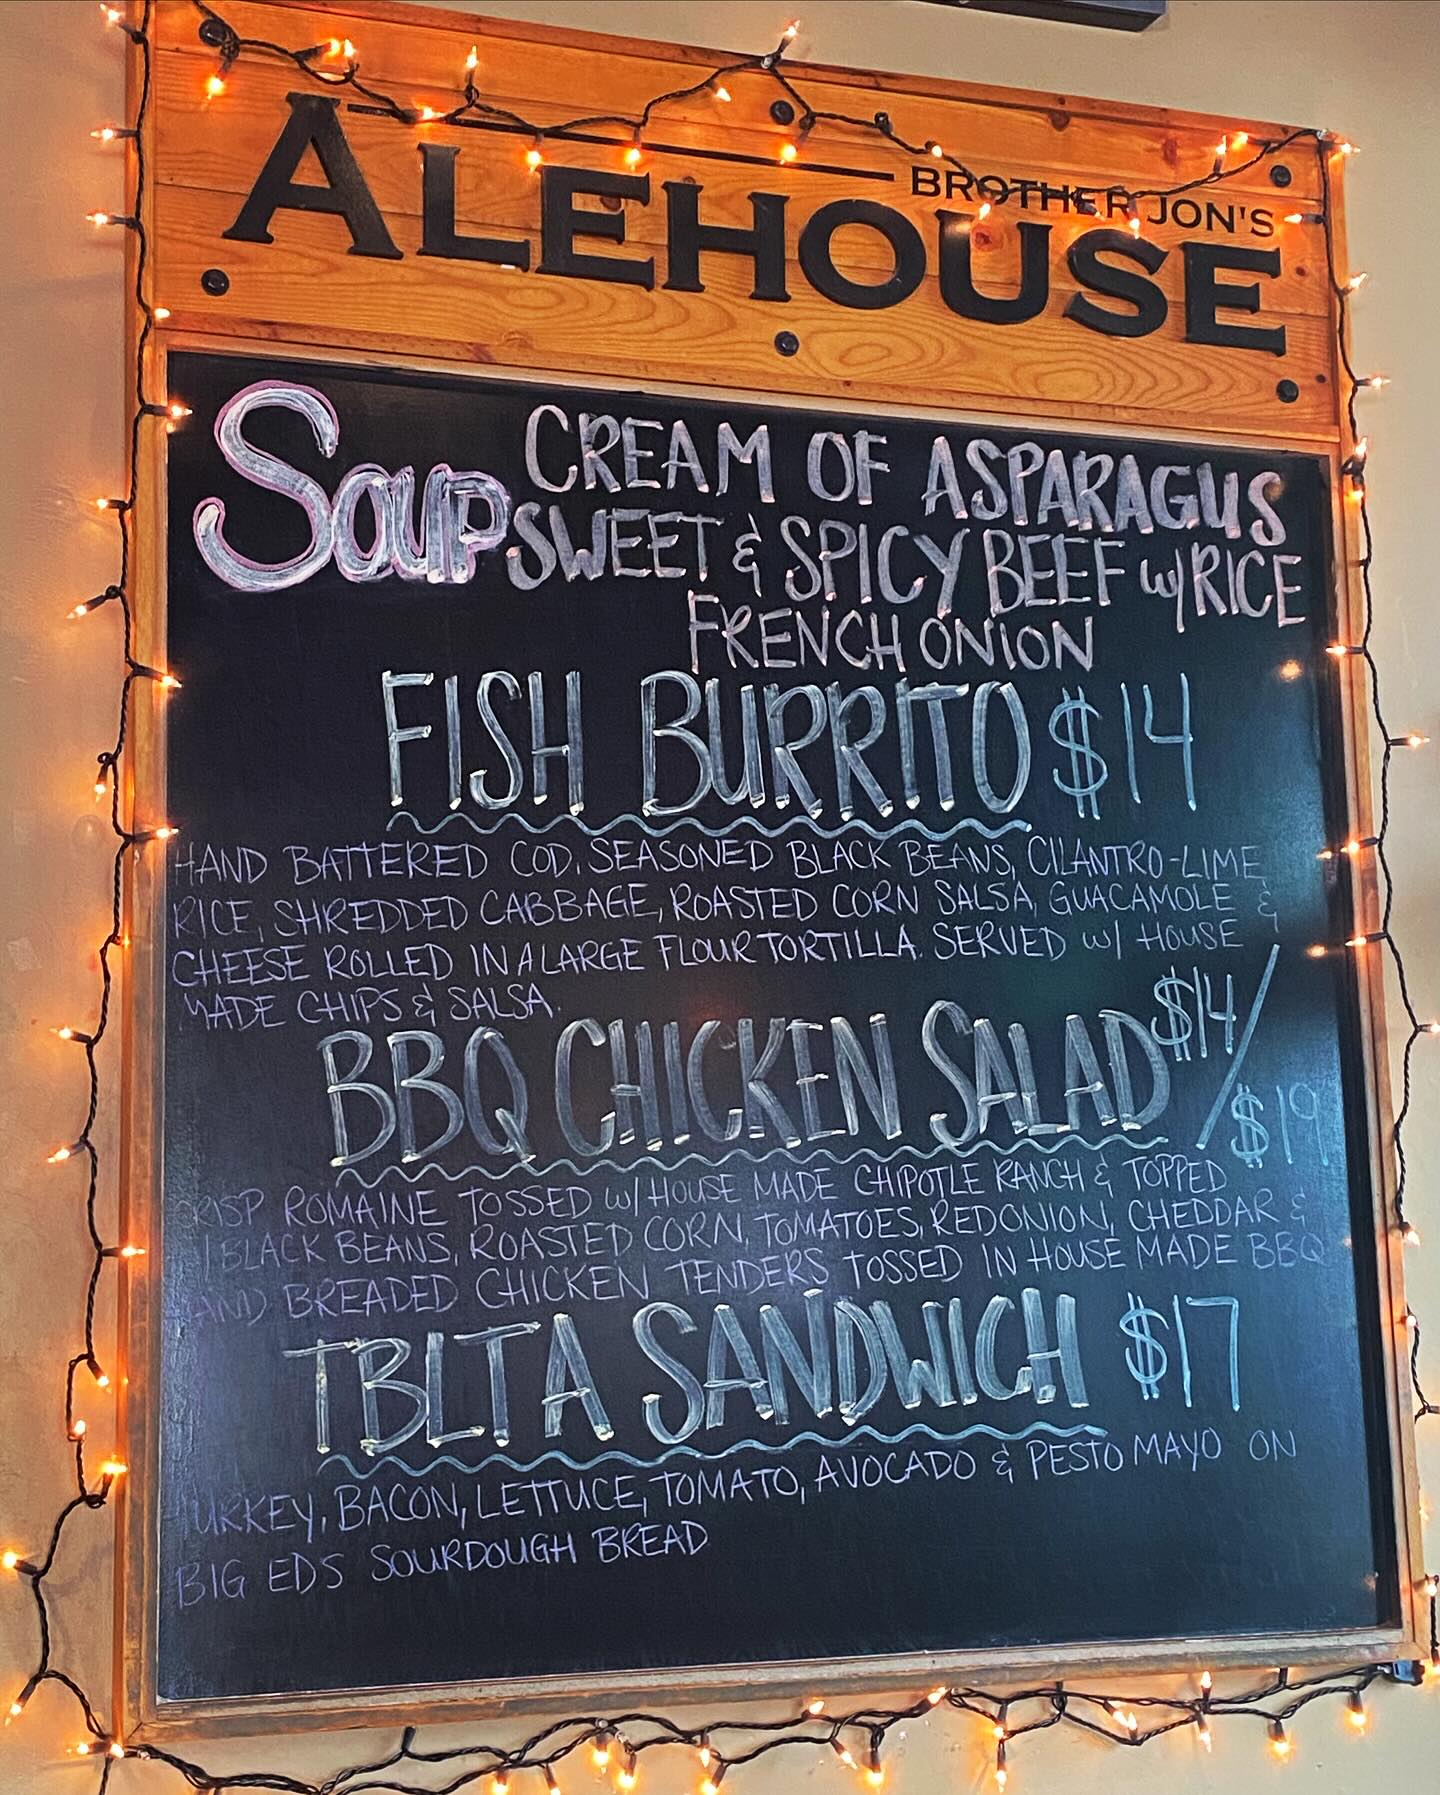 BROTHER JON'S
ALEHOUSE
SOUP CREAM OF ASPARAGUS
SWEET & SPICY BEEF w/ RICE
FRENCH ONION
FISH BURRITO $14
HAND BATTERED COD, SEASONED BLACK BEANS, CILANTRO-LIME
RICE, SHREDDED CABBAGE, ROASTED CORN SALSA, GUACAMOLE &
CHEESE ROLLED IN A LARGE FLOUR TORTILLA. SERVED w/ HOUSE
MADE CHIPS & SALSA.
BBQ CHICKEN SALAD $14/$19
CRISP ROMAINE TOSSED w/ HOUSE MADE CHIPOTLE RANCH & TOPPED
BLACK BEANS, ROASTED CORN, TOMATOES, RED ONION, CHEDDAR &
HAND BREADED CHICKEN TENDERS TOSSED IN HOUSE MADE BBQ
TBLTA SANDWICH $17
TURKEY, BACON, LETTUCE, TOMATO, AVOCADO & PESTO MAYO ON
BIG EDS SOURDOUGH BREAD